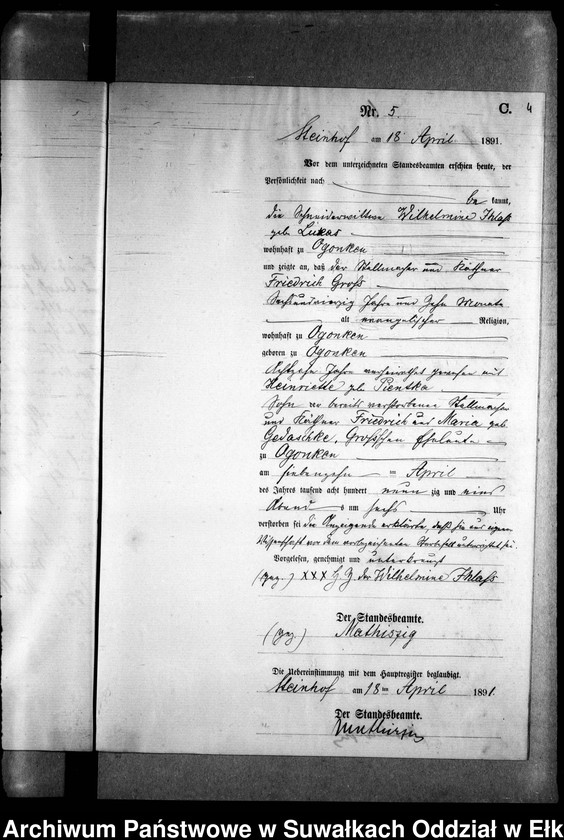 Nr. 5. C. 4
Steinhof am 18 April 1891.
Vor dem unterzeichneten Standesbeamten erschien heute, der
Persönlichkeit nach
be kannt,
die Schneiderwittwe Wilhelmine Iklaß
geb. Lukas
wohnhaft zu Ogonken
und zeigte an, daß der Stellmacher und Käthner
Friedrich Groß
Sechsundvierzig Jahre und Zehn Monate
alt evangelischer Religion,
wohnhaft zu Ogonken
geboren zu Ogonken
Achtzehn Jahre verheirathet gewesen mit
Heinriette geb. Pientka
Sohn der bereits verstorbenen Stellmacher
und Käthner Friedrich und Maria geb.
Gedaschke, Groß'schen Eheleute
zu Ogonken
am siebenzehn ten April
des Jahres tausend acht hundert neun zig und eins
Abend s um sechs Uhr
verstorben sei die Anzeigende erklärte, daß sie aus eigener
Wissenschaft von dem vorbezeichneten Sterbefall unterrichtet sei.
Vorgelesen, genehmigt und unterkreuzt
(gez.) XXX H. Z. der Wilhelmine Iklaß
Der Standesbeamte.
(gez) Mathiszig
Die Uebereinstimmung mit dem Hauptregister beglaubigt.
Steinhof am 18 ten April 1891.
Der Standesbeamte.
Mathiszig
Archiwum Państwowe w Suwałkach Oddział w Ełku